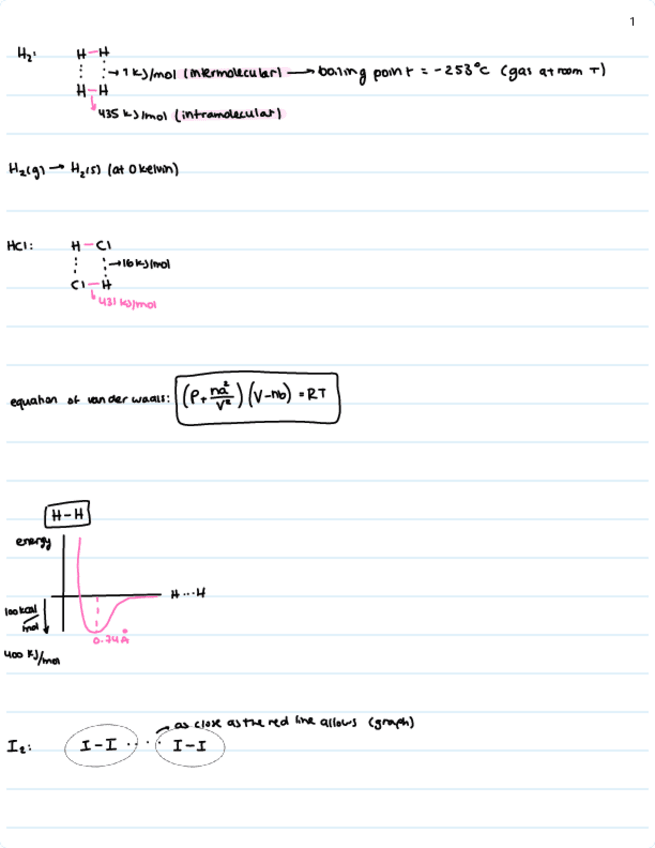 1
H₂: H-H
→ 1 kJ/mol (intermolecular) → boiling point = -253°C (gas at room T)
H-H
435 kJ/mol (intramolecular)
H₂(g) → H₂(s) (at 0 kelvin)
HCl: H-Cl
→ 16 kJ/mol
Cl-H
431 kJ/mol
equation of van der waals: (P+ na²/V²) (V-nb) = RT
H-H
energy
H...H
100 kcal/mol
0.74Å
400 kJ/mol
as close as the red line allows (graph)
I₂: I-I ···· I-I